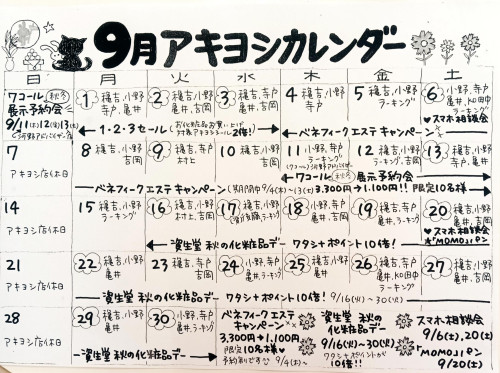 9月アキヨシカレンダー
日 月 火 水 木 金 土
ワコール 秋冬
展示予約会
9/11(木)12(金)13(土)
1 穐吉、小野、寺戸、亀井
2 穐吉、小野、亀井、吉岡
3 穐吉、寺戸、亀井、吉岡
4 穐吉、小野、寺戸
5 穐吉、小野、ラーキング
6 小野、寺戸、亀井、和田中、ラーキング
♥スマホ相談会
1・2・3セール
2倍!)
ベネフィークエステキャンペーン
7
アキヨシ店休日
8 穐吉、小野、亀井、吉岡
9 穐吉、寺戸、村上
10 穐吉、小野、吉岡
11 小野、寺戸、ラーキング
12 穐吉、小野、亀井、吉岡
13 穐吉、寺戸、亀井、吉岡
ワコール 秋冬 展示予約会
ベネフィークエステキャンペーン(HAPPY) 9/4(木)〜13(土) 3,300円→1,100円!! 限定10名様
14
アキヨシ店休日
15 穐吉、小野、ラーキング
16 穐吉、小野、村上、吉岡
17 穐吉、小野、ラーキング
18 穐吉、小野、亀井、ラーキング
19 穐吉、寺戸、亀井、吉岡
20 小野、寺戸、亀井、吉岡
♥スマホ相談会
★「MOMO」パン
資生堂 秋の化粧品デー ワタシ+ポイント10倍!
21
アキヨシ店休日
22 穐吉、小野、亀井
23 穐吉、寺戸、吉岡
24 小野、寺戸、亀井、ラーキング
25 穐吉、小野、寺戸、亀井
26 穐吉、寺戸、亀井、和田中、吉岡
27 小野、寺戸、亀井、ラーキング
資生堂 秋の化粧品デー ワタシ+ポイント10倍! 9/16(火)〜30(火)
28
アキヨシ店休日
29 穐吉、小野、亀井
30 穐吉、寺戸、亀井、ラーキング
資生堂 秋の化粧品デー
ベネフィークエステ
キャンペーン
3,300円→1,100円
限定10名様♥
9/4(木)〜
資生堂 秋の
化粧品デー
9/16(火)〜30(火)
ワタシ+ポイントが
10倍!
スマホ相談会
9/6(土),20(土)
「MOMO」パン
9/20(土)